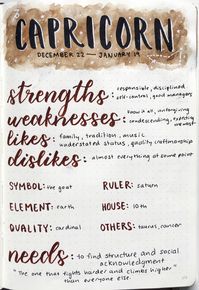 CAPRICORN
DECEMBER 22 — JANUARY 19
strengths: responsible, disciplined
self-control, good managers
weaknesses: know it all, unforgiving
condescending, expecting the worst
likes: family, tradition, music
understated status, quality craftmanship
dislikes: almost everything at some point
SYMBOL: the goat RULER: saturn
ELEMENT: earth HOUSE: 10th
QUALITY: cardinal OTHERS: taurus, cancer
needs: to find structure and social
acknowledgment
"the one that fights harder and climbs higher"
than everyone else.